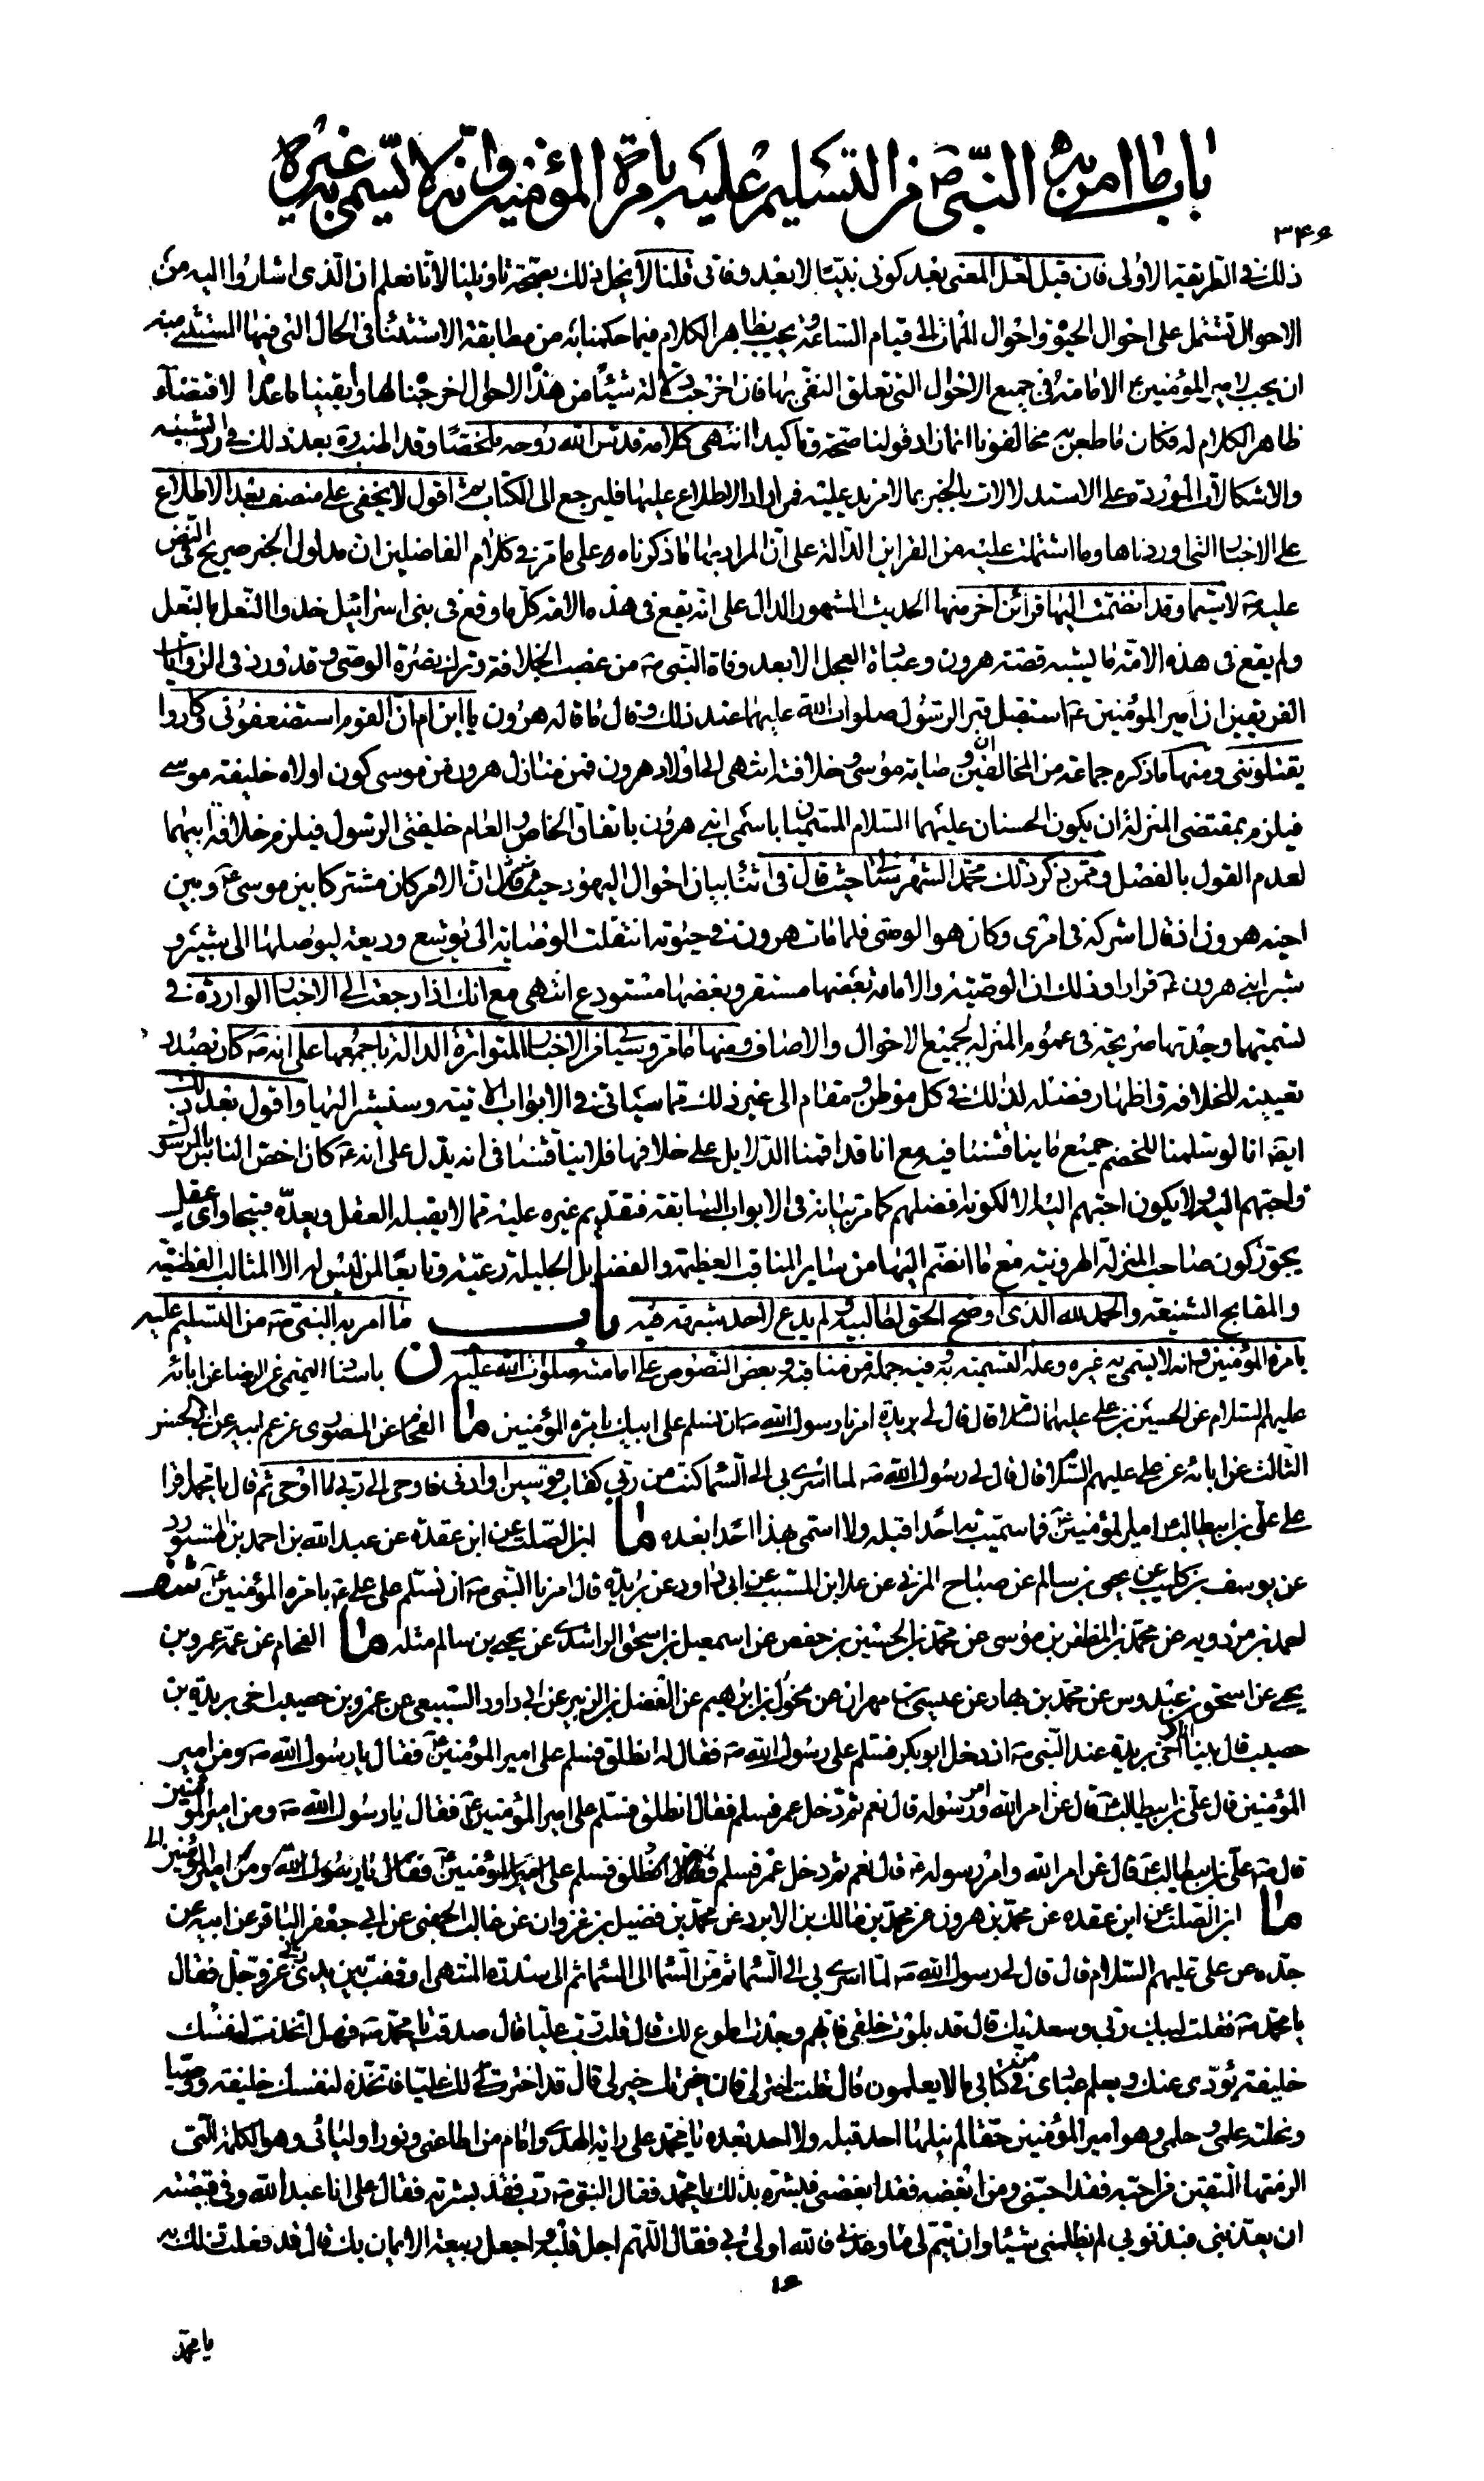 باب ما امر به النبي ص من التسليم عليه بامرة المؤمنين وانه لا يسمى به غيره
۳۴۶
ذلك في الطريقة الاولى فان قيل لعل المعنى بعد كوني نبيا لا بعد وفاتي قلنا لا يخل ذلك بصحة تاويلنا لانا نعلم ان الذي اشاروا اليه من
الاحوال تشتمل على احوال الحيوة واحوال الممات الى قيام الساعة ويجب بظاهر الكلام فيما حكمنا به من مطابقة الاستثناء في الحال التي فيها المستثنى منه
ان يجب لامير المؤمنين ع الامامة في جميع الاحوال التي تعلق النفي بها فان اخرجت دلالة شيئا من هذه الاحوال اخرجناها وابقينا ما عداه لاقتضاء
ظاهر الكلام له فكان ما طعن به مخالفونا انما زاد قولنا صحة وتاكيدا انتهى كلامه قدس الله روحه ملخصا وقد اطنب ره بعد ذلك في رد الشبه
والاشكالات الموردة على الاستدلالات بالخبر بما لا مزيد عليه فمن اراد الاطلاع عليها فليرجع الى الكتاب ثم اقول لا يخفى على منصف بعد الاطلاع
على الاخبار التي اوردناها وما اشتملت عليه من القراين الدالة على ان المراد بها ما ذكرناه وعلى ما مر في كلام الفاضلين ان مدلول الخبر صريح في النص
عليه ص لا سيما وقد انضمت اليها قرائن اخر منها الحديث المشهور الدال على انه يقع في هذه الامة كل ما وقع في بني اسرائيل حذو النعل بالنعل
ولم يقع في هذه الامة ما يشبه قصة هرون وعبادة العجل الا بعد وفاة النبي ص من غصب الخلافة وترك نصرة الوصي وقد ورد في الروايات
الفريقين ان امير المؤمنين ع استقبل قبر الرسول صلوات الله عليهما عند ذلك وقال ما قاله هرون يا ابن ام ان القوم استضعفوني وكادوا
يقتلونني ومنها ما ذكره جماعة من المخالفين ان وصاية موسى وخلافته انتهى الى اولاد هرون فمن منازل هرون من موسى كون اولاده خليفة موسى
فيلزم بمقتضى المنزلة ان يكون الحسنان عليهما السلام المسميان باسمى ابني هرون باتفاق الخاص والعام خليفتي الرسول فيلزم خلافة ابيهما
لعدم القول بالفصل وممن ذكر ذلك محمد الشهرستاني حيث قال في اثناء بيان احوال اليهود حيث قال ان الامر كان مشتركا بين موسى ع وبين
اخيه هرون اذ قال اشركه في امري وكان هو الوصي فلما مات هرون في حيوته انتقلت الوصاية الى يوشع وديعة ليوصلها الى شبير و
شبر ابني هرون ع قرارا وذلك ان الوصية والامامة بعضها مستقر وبعضها مستودع انتهى مع انك اذا رجعت الى الاخبار الواردة في
تسميتهما وجدتها صريحة في عموم المنزلة لجميع الاحوال والاوصاف ومنها ما مر وسياتي من الاخبار المتواترة الدالة باجمعها على انه ص كان بصدد
تعيينه للخلافة واظهار فضله لذلك في كل موطن ومقام الى غير ذلك مما سياتي في الابواب الاتية وسنشير اليها واقول بعد ذلك
ايضا انا لو سلمنا للخصم جميع ما يناقشنا فيه مع انا قد اقمنا الدلايل على خلافها فلا يناقشنا في انه يدل على انه ع كان اخص الناس بالرسول
واحبهم اليه ولا يكون احبهم اليه الا لكونه افضلهم كما مر بيانه في الابواب السابقة فتقديم غيره عليه مما لا يقبله العقل ويعده قبيحا واي عقل
يجوز كون صاحب المنزلة الهرونية مع ما انضم اليها من ساير المناقب العظيمة والفضايل الجليلة رعية وتابعا لمن ليس له الا المثالب الفظيعة
والمقابح الشنيعة والحمد لله الذي اوضح الحق لطالبيه ولم يدع لاحد شبهة فيه باب ما امر به النبي ص من التسليم عليه
بامرة المؤمنين وانه لا يسمى به غيره وعلة التسمية به وفيه جملة من مناقبه وبعض النصوص على امامته صلوات الله عليه ن باسناد التميمي عن الرضا عن ابائه
عليهم السلام عن الحسين بن علي عليهما السلام قال قال لي بريدة امرنا رسول الله ص ان نسلم على ابيك بامرة المؤمنين ما الفحام عن المنصوري عن عم ابيه عن ابي الحسن
الثالث عن ابائه عن علي عليهم السلام قال قال لي رسول الله ص لما اسري بي الى السماء كنت من ربي كقاب قوسين او ادنى فاوحى الي ربي ما اوحى ثم قال يا محمد اقرا
على علي بن ابيطالب امير المؤمنين فما سميت به احدا قبله ولا اسمي بهذا احدا بعده ما ابن الصلت عن ابن عقدة عن عبد الله بن احمد بن المستورد
عن يوسف بن كليب عن يحيى بن سالم عن صباح المزني عن علا ابن المسيب عن ابي داود عن بريدة قال امرنا النبي ص ان نسلم على علي ع بامرة المؤمنين شف
احمد بن مردويه عن محمد بن المظفر بن موسى عن محمد بن الحسين بن حفص عن اسمعيل بن اسحق الراشدي عن يحيى بن سالم مثله ما الفحام عن عمه عمرو بن
يحيى عن اسحق بن عبدوس عن محمد بن بهار عن عيسى بن مهران عن مخول بن ابرهيم عن الفضل بن الزبير عن ابي داود السبيعي عن عمرو بن حصيب اخي بريدة بن
حصيب قال بينا انا واخي بريدة عند النبي ص اذ دخل ابو بكر فسلم على رسول الله ص فقال له انطلق فسلم على امير المؤمنين فقال يا رسول الله ص ومن امير
المؤمنين قال علي بن ابيطالب ع قال عن امر الله وامر رسوله قال نعم ثم دخل عمر فسلم فقال انطلق فسلم على امير المؤمنين ع فقال يا رسول الله ص ومن امير المؤمنين
قال ص علي بن ابيطالب ع قال عن امر الله وامر رسوله ع قال نعم ثم دخل عمر فسلم فقال انطلق فسلم على امير المؤمنين فقال يا رسول الله ومن امير المؤمنين الخ
ما ابن الصلت عن ابن عقده عن محمد بن هرون عن محمد بن مالك بن الابرد عن محمد بن فضيل بن غزوان عن غالب الجهني عن ابي جعفر الباقر عن ابيه عن
جده عن علي عليهم السلام قال قال لي رسول الله ص لما اسري بي الى السماء ثم من السماء الى السماء ثم الى سدرة المنتهى اوقفت بين يدي ربي عز وجل فقال
يا محمد ص فقلت لبيك ربي وسعديك قال قد بلوت خلقي فايهم وجدت اطوع لك قال قلت رب عليا قال صدقت يا محمد ص فهل اتخذت لنفسك
خليفة يؤدي عنك ويعلم عبادي من كتابي ما لا يعلمون قال قلت اختر لي فان خيرتك خير لي قال قد اخترت لك عليا فاتخذه لنفسك خليفة ووصيا
ونحلته علمي وحلمي وهو امير المؤمنين حقا لم ينلها احد قبله ولا احد بعده يا محمد علي راية الهدى وامام من اطاعني ونور اوليائي وهو الكلمة التي
الزمتها المتقين من احبه فقد احبني ومن ابغضه فقد ابغضني فبشره بذلك يا محمد فقال النبي ص رب فقد بشرته فقال علي انا عبد الله وفي قبضته
ان يعذبني فبذنوبي لم يظلمني شيئا وان يتم لي ما وعدني فالله اولى بي فقال اللهم اجل قلبه واجعل ربيعه الايمان بك قال قد فعلت ذلك به
۱۶
يا محمد